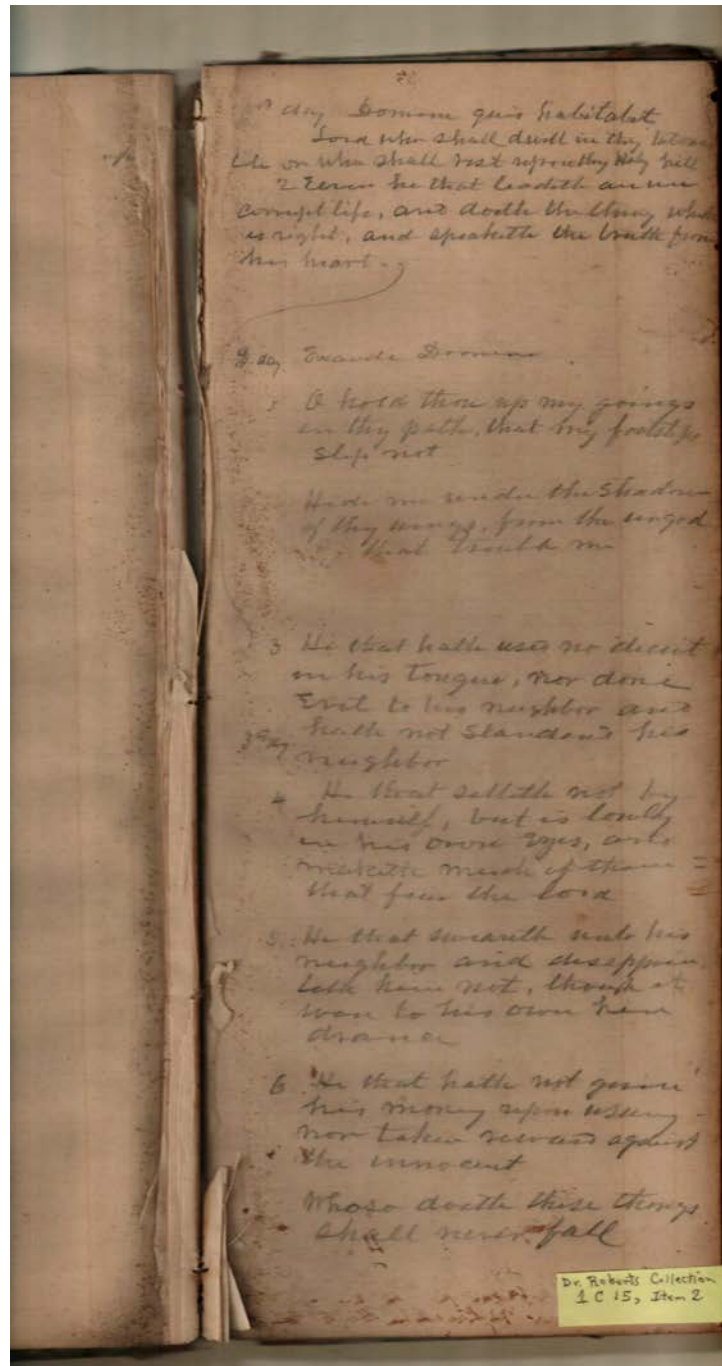 day Domine quis habitabit
Lord who shall dwell in thy taberna
cle or who shall rest upon thy Holy hill
2 Even he that leadeth an un
corrupt life, and doeth the thing which
is right, and speaketh the truth from
his heart.
day Exaudi Domine
5 O hold thou up my goings
in thy path, that my footsteps
slip not
Hide me under the Shadow
of thy wings, from the ungod
that trouble me
3 He that hath used no deceit
in his Tongue, nor done
Evil to his neighbor and
hath not Slandered his
3 day
neighbor
4 He that setteth not by
himself, but is lowly
in his own Eyes, and
maketh much of them =
that fear the Lord
5 He that sweareth unto his
neighbor and disappoin
teth him not, though it
were to his own hin
drance
6 He that hath not given
his money upon usury
nor taken reward against
the innocent
Whoso doeth these things
shall never fall
Dr. Roberts Collection
1 C 15, Item 2